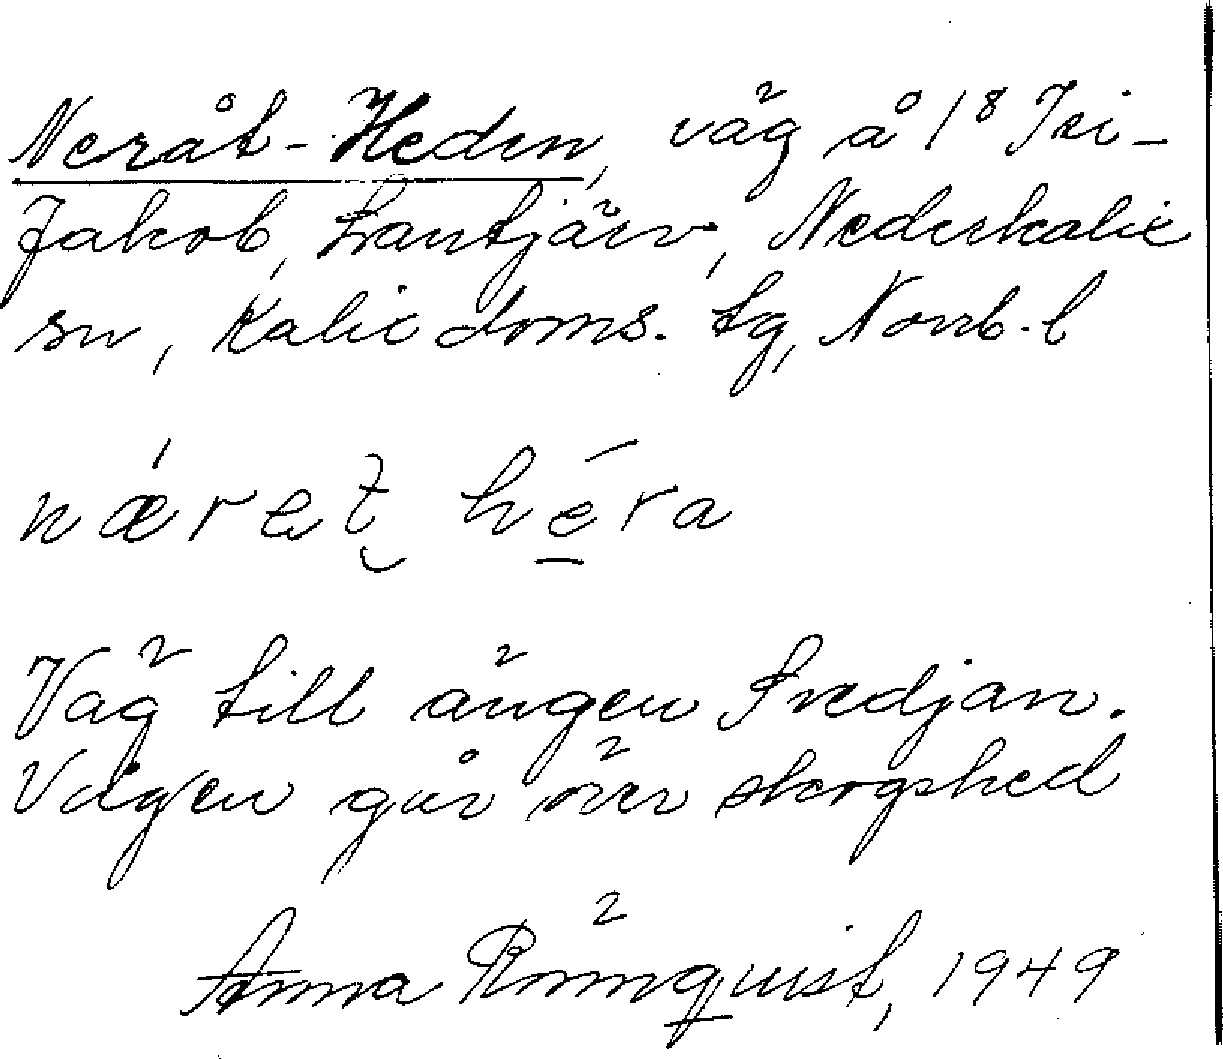 Neråt-Heden, väg å 1⁸ Jei-
Jakob, Lantjärv, Nederkalix
sn, Kalix doms. tg, Norrb. l
næ´reṱ hē̱ra
Väg till ängen Tredjan.
Vägen går över skogshed
Anna Rönnquist, 1949